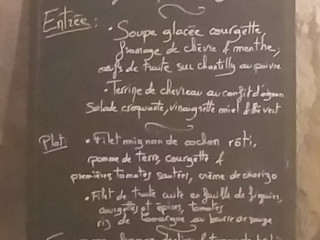 Entrée:
• Soupe glacée courgette,
fromage de chèvre & menthe,
œufs de truite sur chantilly au poivre
• Terrine de chevreau au confit d'oignon
Salade croquante, vinaigrette miel &
Plat:
• Filet mignon de cochon rôti,
pomme de terre, courgette &
premières tomates sautées, crème de chorizo
• Filet de truite cuite en feuille de figuier,
courgettes et épices, tomates
riz de Camargue au beurre rouge